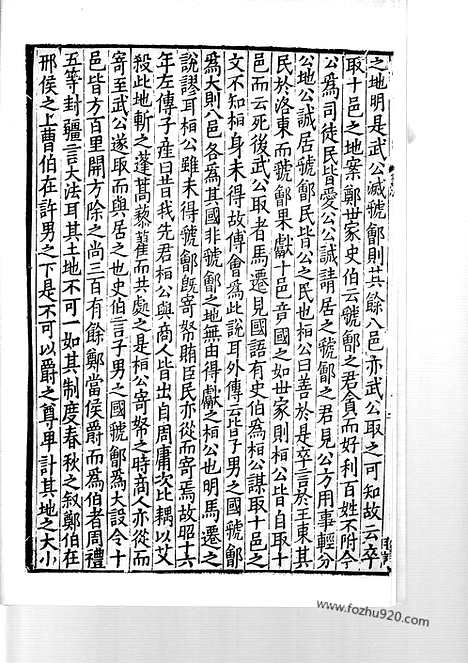 之地明是武公滅虢鄶則其餘八邑亦武公取之可知故云卒
取十邑之地案鄭世家史伯云虢鄶之君貪而好利百姓不附今
公為司徒民皆愛公公誠請居之虢鄶之君見公方用事輕分
公地公誠居虢鄶民皆公之民也桓公曰善於是卒言於王東其
民於洛東而虢鄶果獻十邑音國之如世家則桓公皆自取十
邑而云死後武公取者馬遷見國語有史伯為桓公謀取十邑之
文不知桓身未得故傅會為此說耳外傳云皆子男之國虢鄶
為大則八邑各為其國非虢鄶之地無由得獻之桓公也明馬遷之
說謬耳桓公雖未得虢鄶旣寄帑賄臣民亦從而寄焉故昭十六
年左傳子產曰昔我先君桓公與商人皆出自周庸次比耦以艾
殺此地斬之蓬蒿藜藋而共處之是桓公寄帑之時商人亦從而
寄至武公遂取而與居之也史伯言子男之國虢鄶為大設令十
邑皆方百里開方除之尚三百有餘鄭當侯爵而為伯者周禮
五等封疆言大法耳其土地不可一如其制度春秋之叙鄭伯在
邢侯之上曹伯在許男之下是不可以爵之尊卑計其地之大小
www.fozhu920.com